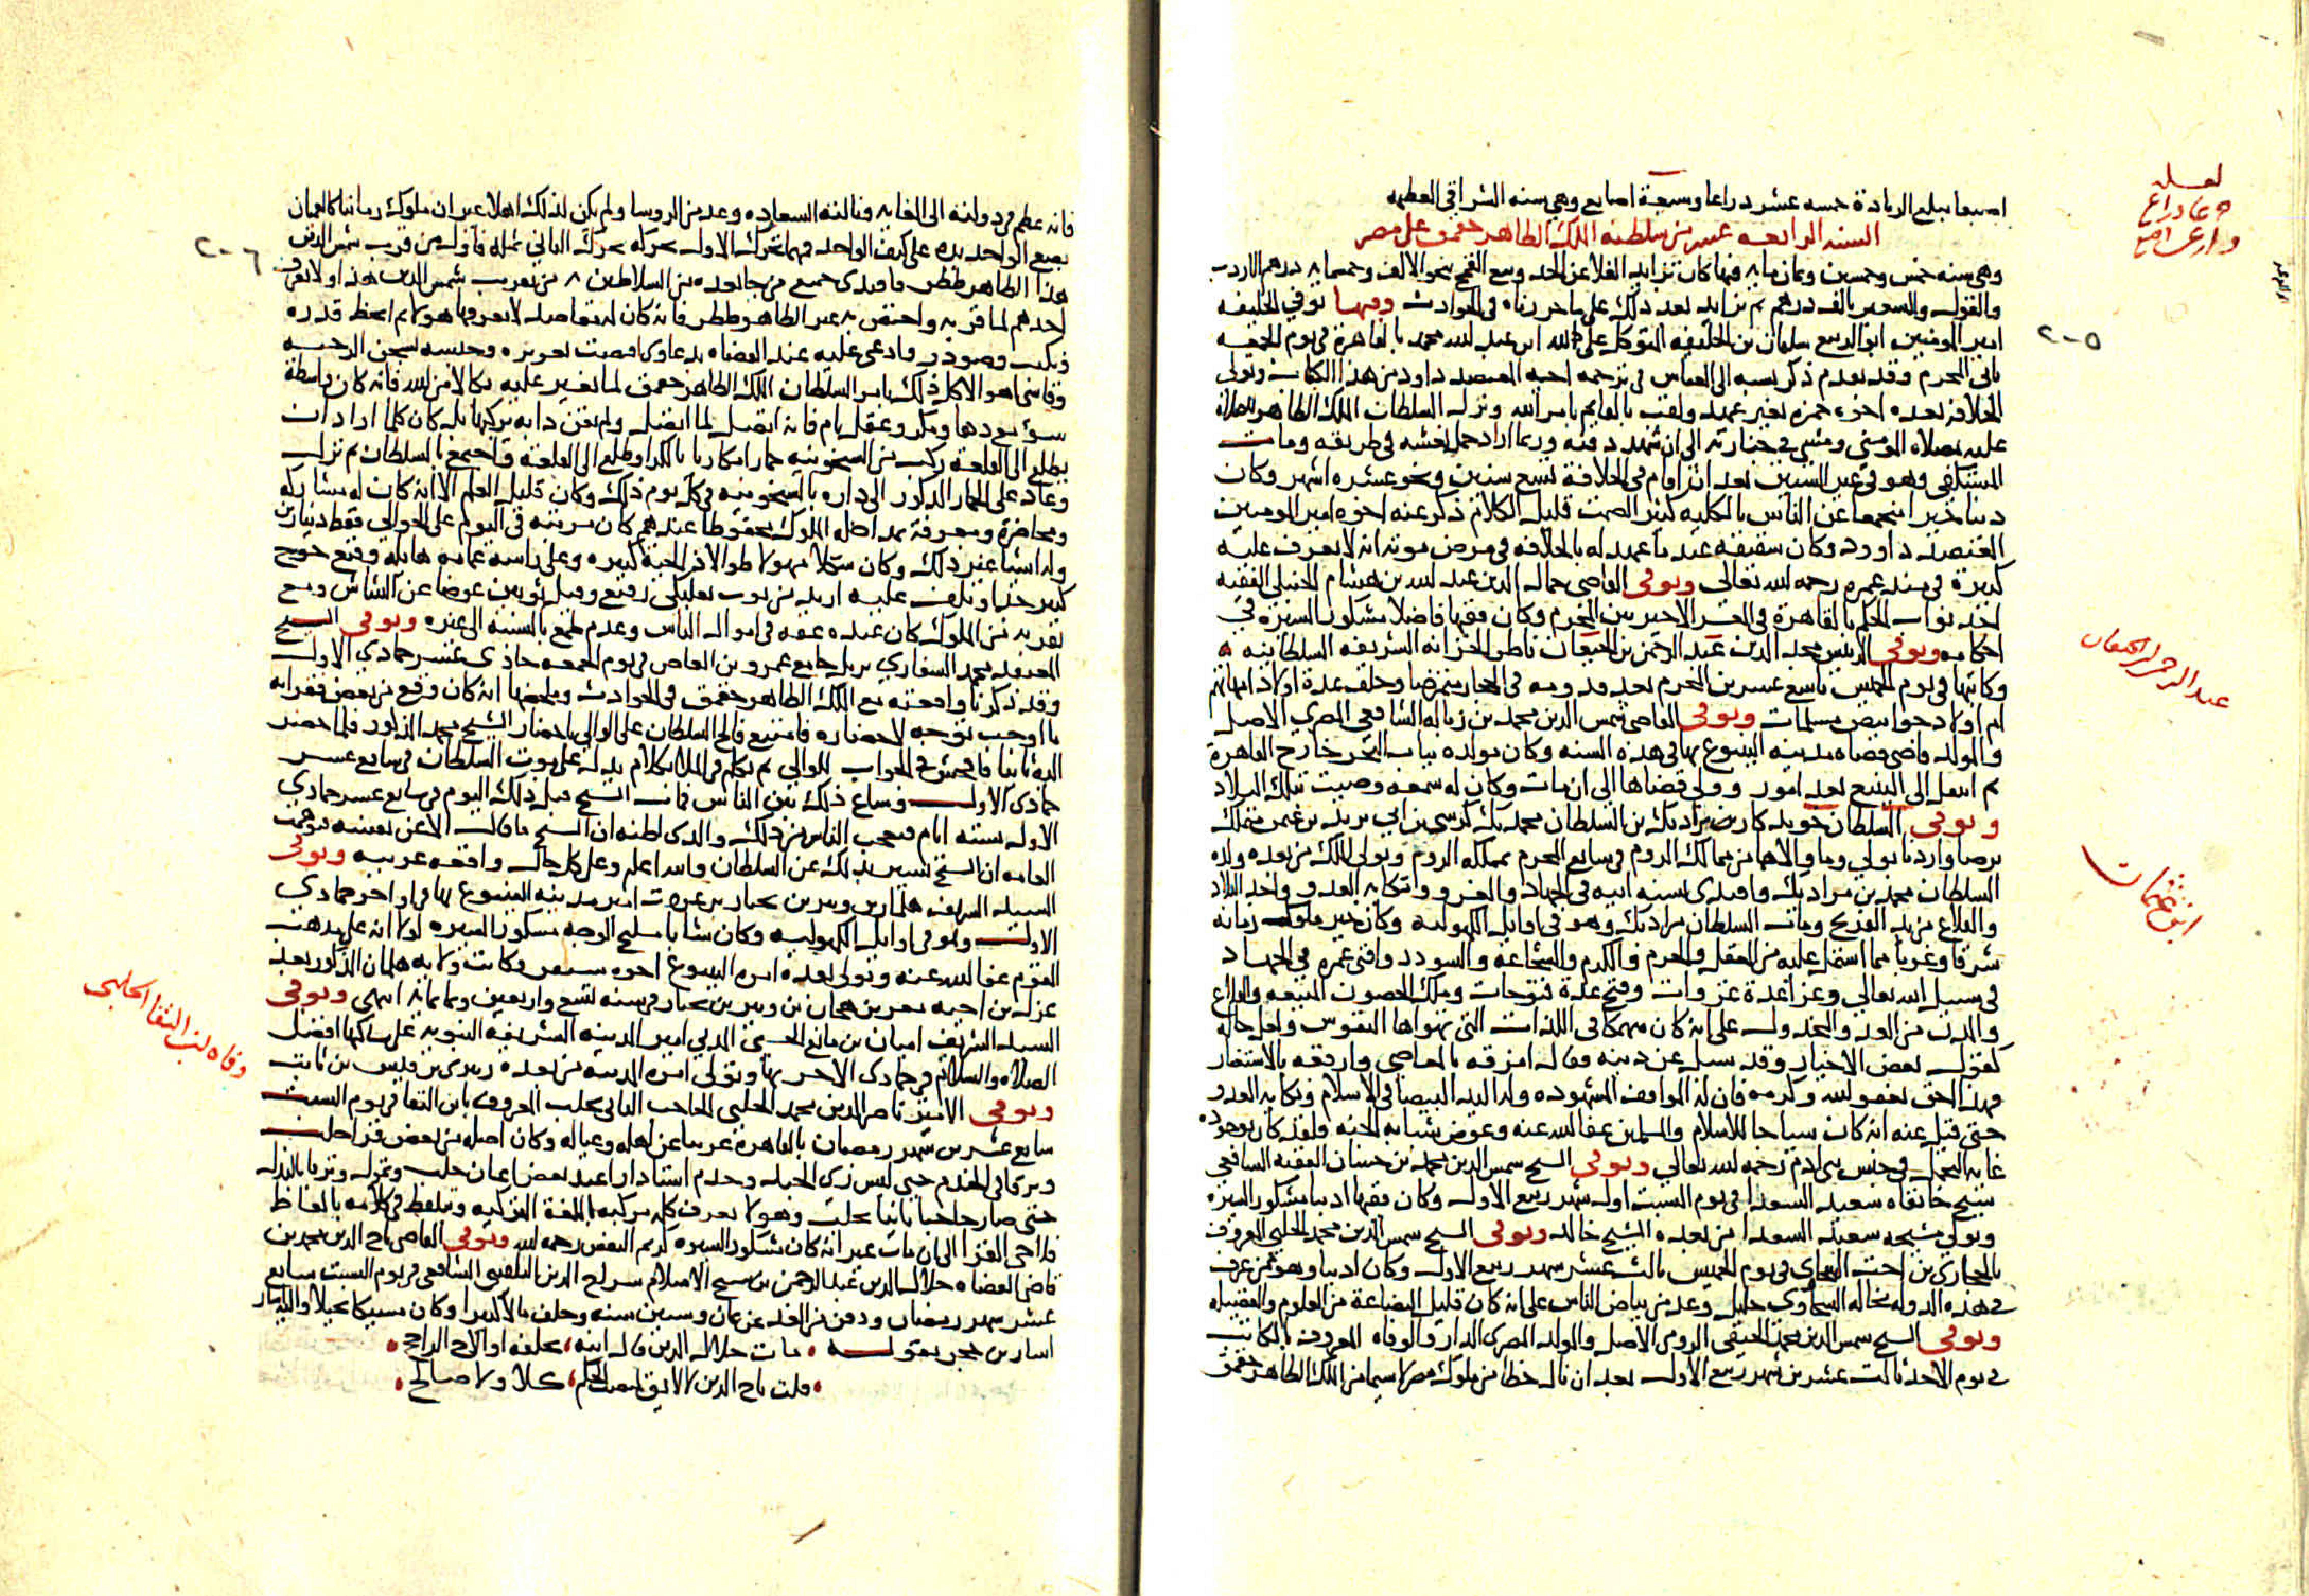 اصبعا مبلغ الزيادة خمسه عشر ذراعا وسبعة اصابع وهي سنه الشراقي العظيمه
السنه الرابعه عشر من سلطنه الملك الظاهر جقمق على مصر
وهي سنه خمس وخمسين وثمان مايه فيها كان تزايد الغلا عن الحد وبيع القمح بنحو الالف وخمسمايه درهم الاردب
والفول والشعير بالف درهم ثم تزايد بعد ذلك على ما حررناه في الحوادث وفيها توفي الخليفه
امير المومنين ابو الربيع سليمان بن الخليفه المتوكل على الله ابي عبد الله محمد بالقاهرة في يوم الجمعه
ثاني المحرم وقد تقدم ذكر نسبه الى العباس في ترجمه اخيه المعتضد داود من هذا الكتاب وتولى
الخلافه بعده اخوه حمزه بغير عهد ولقب بالقايم بامر الله ونزل السلطان الملك الظاهر للصلاة
عليه بمصلاه المومني ومشى في جنازته الى ان شهد دفنه وربما اراد حمل نعشه في طريقه ومات
المستكفي وهو في عشر الستين بعد ان اقام في الخلافة تسع سنين ونحو عشره اشهر وكان
دينا خيرا منجمعا عن الناس بالكليه كثير الصمت قليل الكلام ذكر عنه اخوه امير المومنين
المعتضد داوود وكان شقيقه عند ما عهد له بالخلافه في مرض موته انه لا يعرف عليه
كبيرة في مدة عمره رحمه الله تعالى وتوفي القاضي جمال الدين عبد الله بن هشام الحنبلي الفقيه
احد نواب الحكم بالقاهرة في العشر الاخير من المحرم وكان فقيها فاضلا مشكور السيرة في
احكامه وتوفي الرييس مجد الدين عبد الرحمن بن الجيعان ناظر الخزانه الشريفه السلطانيه
وكاتبها في يوم الخميس تاسع عشرين المحرم بعد قدومه من الحجاز متمرضا وخلف عدة اولاد امهاتهم
ام اولاد جوار بيض مسلمات وتوفي القاضي شمس الدين محمد بن زباله الشافعي المصري الاصل
والمولد قاضي قضاه مدينه الينبوع بها في هذه السنه وكان مولده بباب البحر خارج القاهرة
ثم انتقل الى الينبع بعد امور وولي قضاها الى ان مات وكان له سمعه وصيت بتلك البلاد
وتوفي السلطان خوندكار مراد بك بن السلطان محمد بك كرشجي بن ابي يزيد بن عثمان متملك
برصا وادرنابولي وما والاها من ممالك الروم في سابع المحرم بمملكه الروم وتولى الملك من بعده ولده
السلطان محمد بن مراد بك واقتدى بسنه ابيه في الجهاد والغزو وانكايه العدو واخذ البلاد
والقلاع من يد الفرنج ومات السلطان مراد بك وهو في اوايل الكهولية وكان خير ملوك زمانه
شرقا وغربا مما اشتمل عليه من العقل والحزم والكرم والشجاعه والسودد وافنى عمره في الجهاد
في سبيل الله تعالى وغزا عدة غزوات وفتح عدة فتوحات وملك الحصون المنيعه والقلاع
والمدن من العدو المخذول على انه كان منهمكا في اللذات التي تهواها النفوس ولعل حاله
كقول بعض الاخيار وقد سيل عن دينه فقال امزقه بالمعاصي وارقعه بالاستغفار
فهو احق بعفو الله وكرمه فان له المواقف المشهوده وله اليد البيضا في الاسلام ونكايه العدو
حتى قيل عنه انه كان سياجا للاسلام والمسلمين عفا الله عنه وعوض شبابه الجنه ولقد كان بوجوده
غايه التجمل في جنس بني ادم رحمه الله تعالى وتوفي الشيخ شمس الدين محمد بن حسان الفقيه الشافعي
شيخ خانقاه سعيد السعدا في يوم السبت اول شهر ربيع الاول وكان فقيها اديبا مشكور السيره
وتولى مشيخه سعيد السعدا من بعده الشيخ خالد وتوفي الشيخ شمس الدين محمد الحلبي المعروف
بالحجازي بن اخت السخاوي في يوم الخميس ثالث عشر شهر ربيع الاول وكان اديبا وهو ممن عرف
في هذه الدوله بخاله السخاوي خليل وعد من بياض الناس على انه كان قليل البضاعة من العلوم والفضيله
وتوفي الشيخ شمس الدين محمد الحنفي الرومي الاصل والمولد المصري الدار والوفاه المعروف بالكاتب
في يوم الاحد ثالث عشرين شهر ربيع الاول بعد ان نال حظا من ملوك مصر لا سيما من الملك الظاهر جقمق
لعله
ذراع
عبد الرحمن بن الجيعان
ابن عثمان
٢٠٥
فانه عظم في دولته الى الغايه ونالته السعاده وعد من الروسا ولم يكن لذلك اهلا غير ان ملوك زماننا كالعميان
يضع الواحد يده على كتف الواحد فمهما تحرك الاول بحركه تحرك الثاني بمثله فاول من قرب شمس الدين
هذا الظاهر ططر فاقتدى جميع من جا بعده من السلاطين من تقريب شمس الدين هذا ولا يعرف
احدهم لما قربه واختص به غير الظاهر ططر فانه كان له مقاصد لا يعرفها هولا ثم انحط قدره
ونكب وصودر وادعى عليه عند القضاه بدعاوى اقتضت تعزيره وحبسه بسجن الرحبه
وقاسى اهوالا كل ذلك بامر السلطان الملك الظاهر جقمق لما تغير عليه نكالا من الله فانه كان واسطة
سو بعدها ومكر وعقل تام فانه اتصل لما اتصل ولم يقتن دابه يركبها بل كان كلما اراد ان
يطلع الى القلعة ركب من الشيخونيه حمار امكاريا بالكرا وطلع الى القلعة واجتمع بالسلطان ثم نزل
وعاد على الحمار المذكور الى داره بالشيخونيه في كل يوم ذلك وكان قليل العلم الا انه كان له مشاركه
ومحاضرة ومعرفة بمداخله الملوك محظوظا عندهم كان مرتبه في اليوم على الجوالي فقط دينارين
وله اشيا غير ذلك وكان شكلا مهولا طوالا ذا لحية كبيره وعلى راسه عمامه هايله وقبع جوخ
كبير جدا ويلف عليه ازيد من ثوب بعلبكي رفيع وقيل ثوبين عوضا عن الشاش ومع
تقربه من الملوك كان عنده عفه في اموال الناس وعدم طمع بالنسبه الى غيره وتوفي الشيخ
المعتقد محمد السفاري نزيل جامع عمرو بن العاص في يوم الجمعه حادي عشر جمادي الاول
وقد ذكرنا واقعته مع الملك الظاهر جقمق في الحوادث وملخصها انه كان وقع من بعض فقرايه
ما اوجب توجه لاحضاره فامتنع فالح السلطان على الوالي باحضار الشيخ محمد المذكور فلما حضر
اليه ثانيا فافحش في الجواب للوالي ثم تكلم في الملا بكلام يدل على موت السلطان في سابع عشر
جمادى الاول وشاع ذلك بين الناس فمات الشيخ قبل ذلك اليوم في سابع عشر جمادي
الاول بستة ايام فتعجب الناس من ذلك والذي اظنه ان الشيخ ما قال الا عن نفسه فتوهمت
العامه ان الشيخ يشير بذلك عن السلطان والله اعلم وعلى كل حال واقعه غريبه وتوفي
السيد الشريف هلمان بن وبير بن نخبار امير مدينه الينبوع بها في اواخر جمادى
الاول وهو في اوايل الكهوليه وكان شابا مليح الوجه مشكور السيره لولا انه على مذهب
القوم عفا الله عنه وتولى بعده امره الينبوع اخوه سنقر وكانت ولايه هلمان المذكور بعد
عزل ابن اخيه معزي بن هجان بن وبير بن نخبار في سنه تسع واربعين وثمانمايه انتهى وتوفي
السيد الشريف اميان بن مانع الحسيني المدني امير المدينه الشريفه النبويه على ساكنها افضل
الصلاه والسلام في جمادى الاخر بها وتولى امره المدينه من بعده زبيري بن قيس بن ثابت
وتوفي الامير ناصر الدين محمد الحلبي الحاجب الثاني بحلب المعروف بابن التقا في يوم السبت
سابع عشرين شهر رمضان بالقاهرة غريبا عن اهله وعياله وكان اصله من بعض قرا حلب
وترقى في الخدم حتى لبس زي الجند وخدم استادارا عند بعض اعيان حلب وتمول وترقا بالبذل
حتى صار حاجبا ثانيا بحلب وهو لا يعرف كلمه تركيه باللغة التركيه ويتلفظ في كلامه بالفاظ
فلاحي القرا الى ان مات غير انه كان مشكور السيره كريم النفس رحمه الله وتوفي القاضي تاج الدين محمد بن
قاضي القضاه جلال الدين عبد الرحمن بن شيخ الاسلام سراج الدين البلقيني الشافعي في يوم السبت سابع
عشر شهر رمضان ودفن من الغد عن ثمان وستين سنه وخلف مالا كثيرا وكان مسيكا بخيلا واليه اشار
ابن حجر بقوله مات جلال الدين قال ابنه يخلفه او الاخ الراجح
قلت تاج الدين لا لايق لمنصب الحكم كلا ولا صالح
وفاه ابن التقا الحلبي
٢٠٦